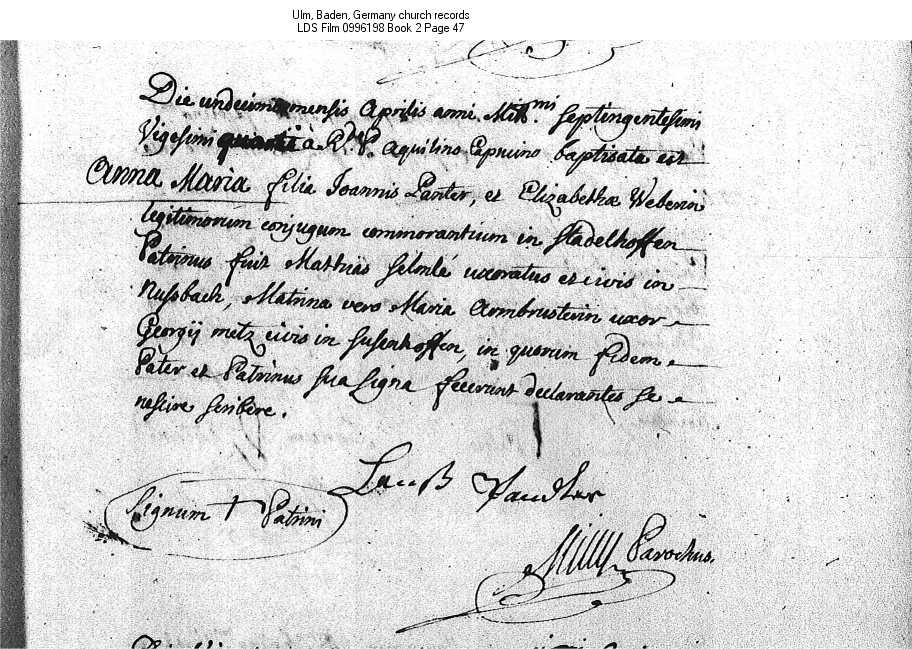 Ulm, Baden, Germany church records
LDS Film 0996198 Book 2 Page 47
Die undecima mensis Aprilis anni Mill.mi Septingentesimi
Vigesimi quarti à R.do P. Aquilino Capucino baptisata est
Anna Maria filia Joannis Panter, et Elizabethæ Weberin
legitimorum conjugum commorantium in Stadelhoffen
Patrinus fuit Mathias uxoratus et civis in
Nussbach, Matrina vero Maria Armbrusterin uxor
Georgij metz civis in Susenhoffen, in quorum fidem
Pater et Patrinus sua signa fecerunt declarantes se
nescire scribere.
Signum + Patrini
Parochus.